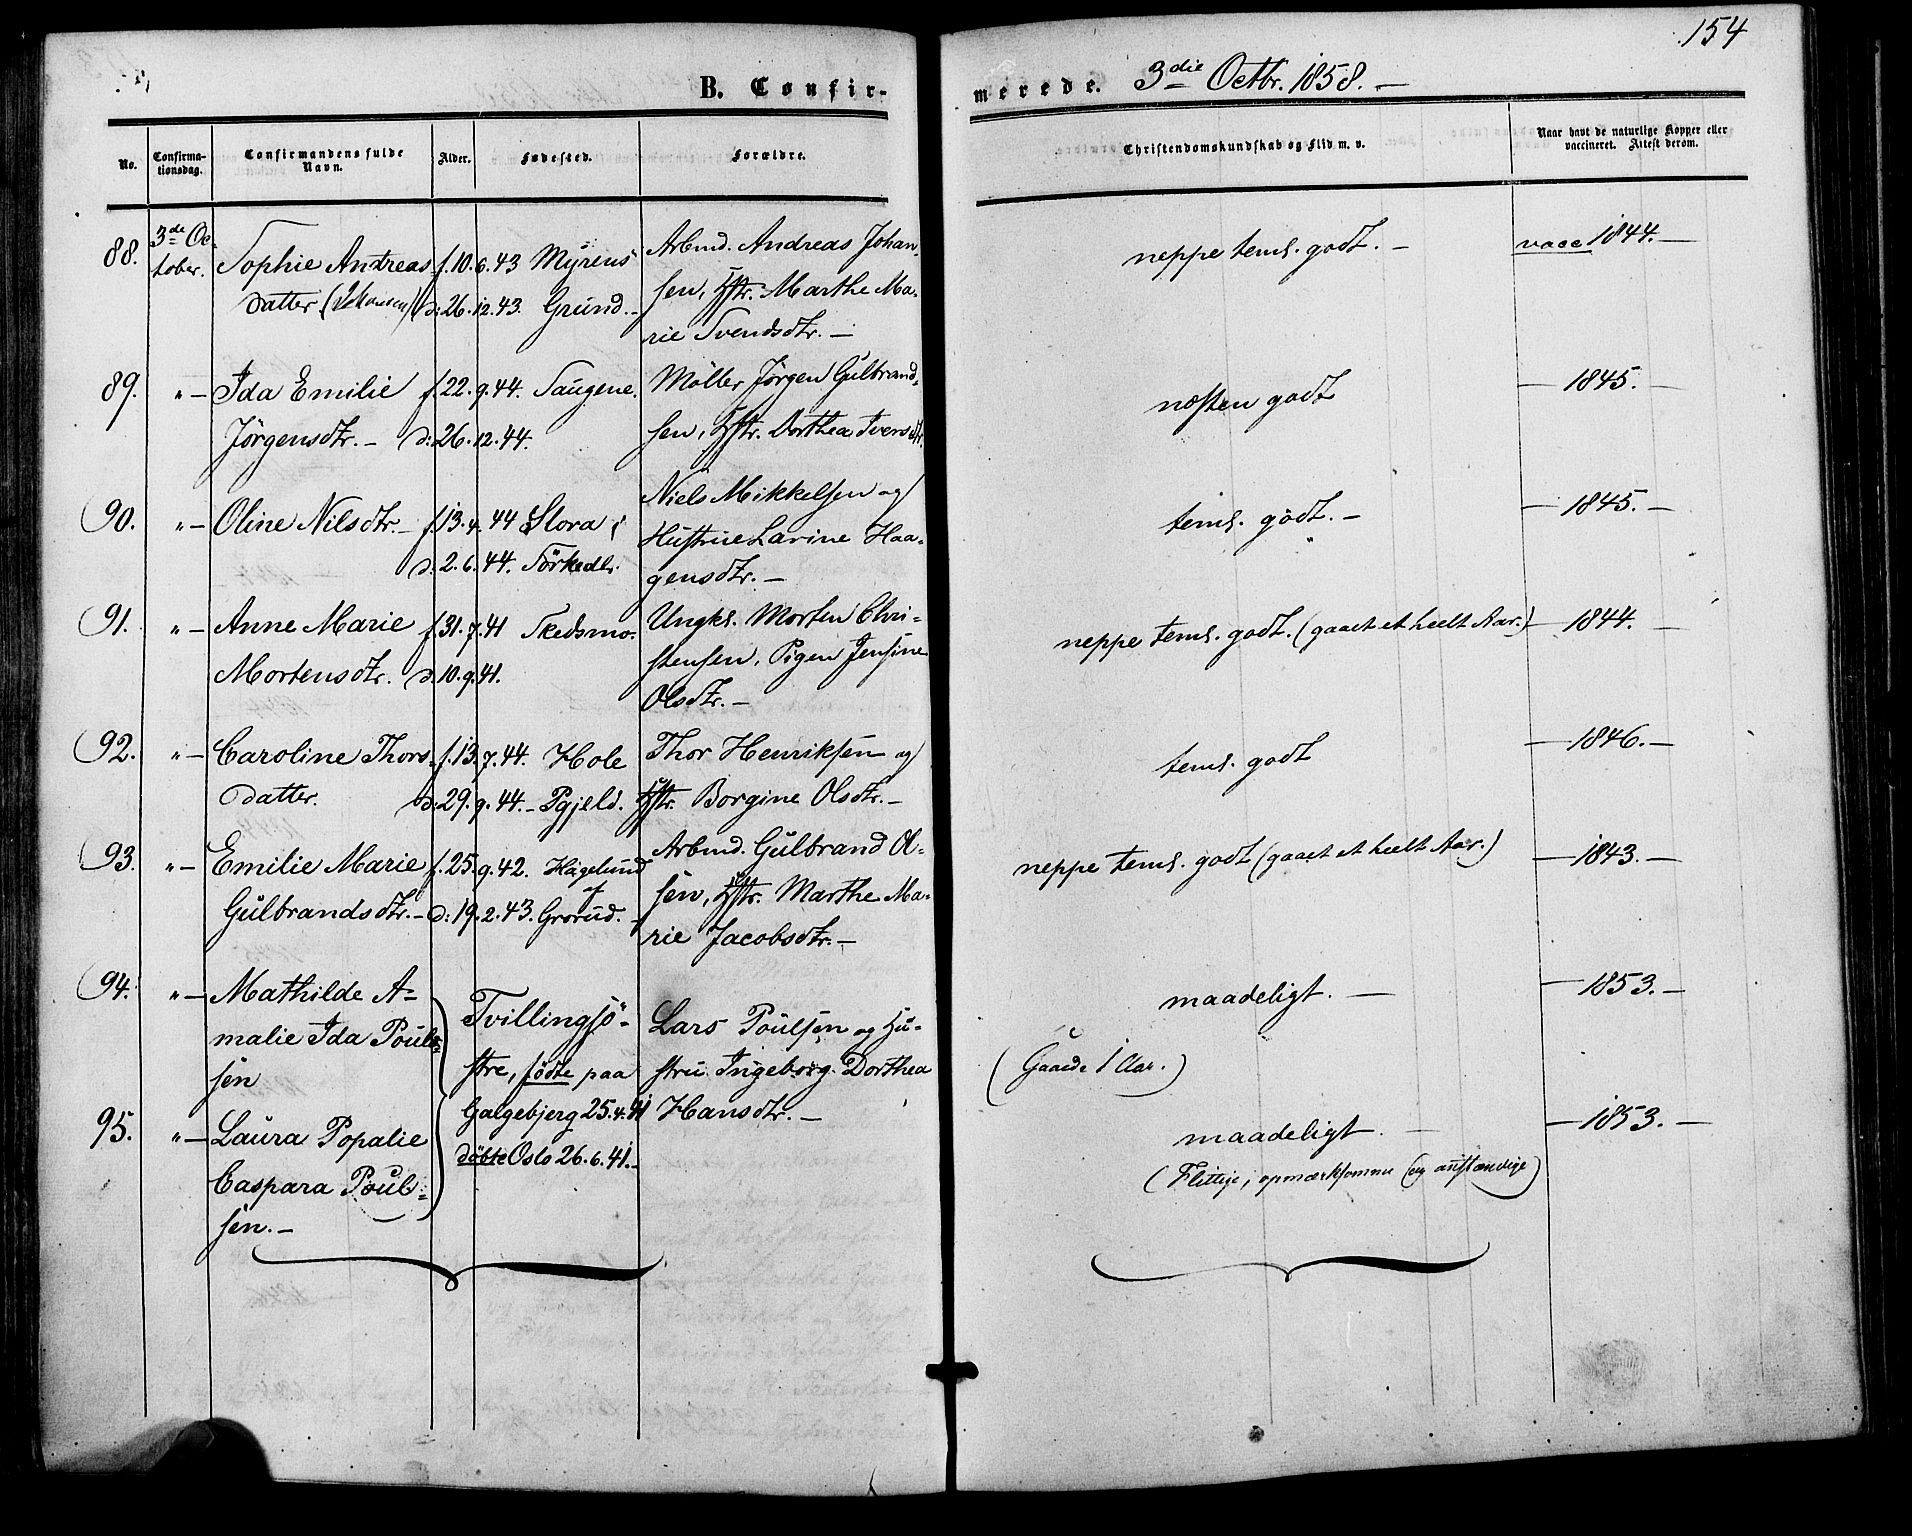 154
B. Confirmerede. 3die Octbr. 1858. —
No. Confirmationsdag. Confirmandens fulde Navn. Alder. Fødested. Forældre. Christendomskundskab og Flid m. v. Naar havt de naturlige Kopper eller vaccineret. Attest derom.
88. 3de October. Sophie Andreas f. 10.6.43 Myrens Arbmd. Andreas Johan- neppe teml. godt. — vacc 1844. —
datter. (Johansen) d: 26.12.43. Grund. — sen, Hstr. Marthe Ma-
rie Svendsdtr. —
89. " — Ida Emilie f. 22.9.44. Saugene. Møller Jørgen Gulbrand- næsten godt — 1845. —
Jörgensdtr. — d: 26.12.44. sen, Hstr. Dorthea Iversdtr.
90. " — Oline Nilsdtr. — f. 13.4.44 Slora i Niels Mikkelsen og teml. godt. — — 1845. —
d: 2.6.44. Sörkedl. Hustrue Larine Haa-
gensdtr. —
91. " — Anne Marie f. 31.7.41 Skedsmo. Ungkl. Morten Chri- neppe teml. godt. (gaaet et heelt Aar.) — 1844. —
Mortensdtr. d. 10.9.41. stensen, Pigen Jensine
Olsdtr. —
92. " — Caroline Thors- f. 13.7.44. Hole Thor Henriksen og teml. godt — 1846. —
datter. d: 29.9.44. — Pgjeld. Hstr. Borgine Olsdtr. —
93. " — Emilie Marie f. 25.9.42. Hagelund Arbmd. Gulbrand Ol- neppe teml. godt (gaaet et heelt Aar.) — 1843. —
Gulbrandsdtr. — d: 19.2.43. Grorud. — sen, Hstr. Marthe Ma-
rie Jacobsdtr. —
94. " — Mathilde A- maadeligt. — — 1853. —
malie Ida Poul- Tvillingsö- Lars Poulsen og Hu-
sen stre, fødte paa stru Ingeborg Dorthea (Gaaede 1 Aar.)
Galgebjerg 25.4.41 Hansdtr. —
95. " — Laura Popalie døbte Oslo 26.6.41. — maadeligt. — — 1853. —
Caspara Poul- (Flittige, opmærksomme og anstændige)
sen. —